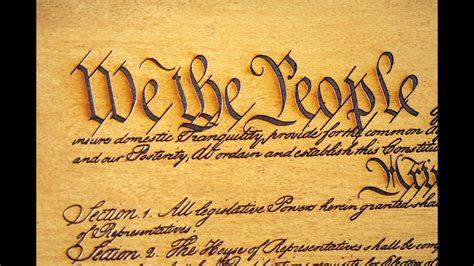 We the People
insure domestic Tranquility, provide for the common
and our Posterity, do ordain and establish this Constit
Section 1. All legislative Powers herein granted sha
of Representatives.
Section 2. The House of Representatives shall be com